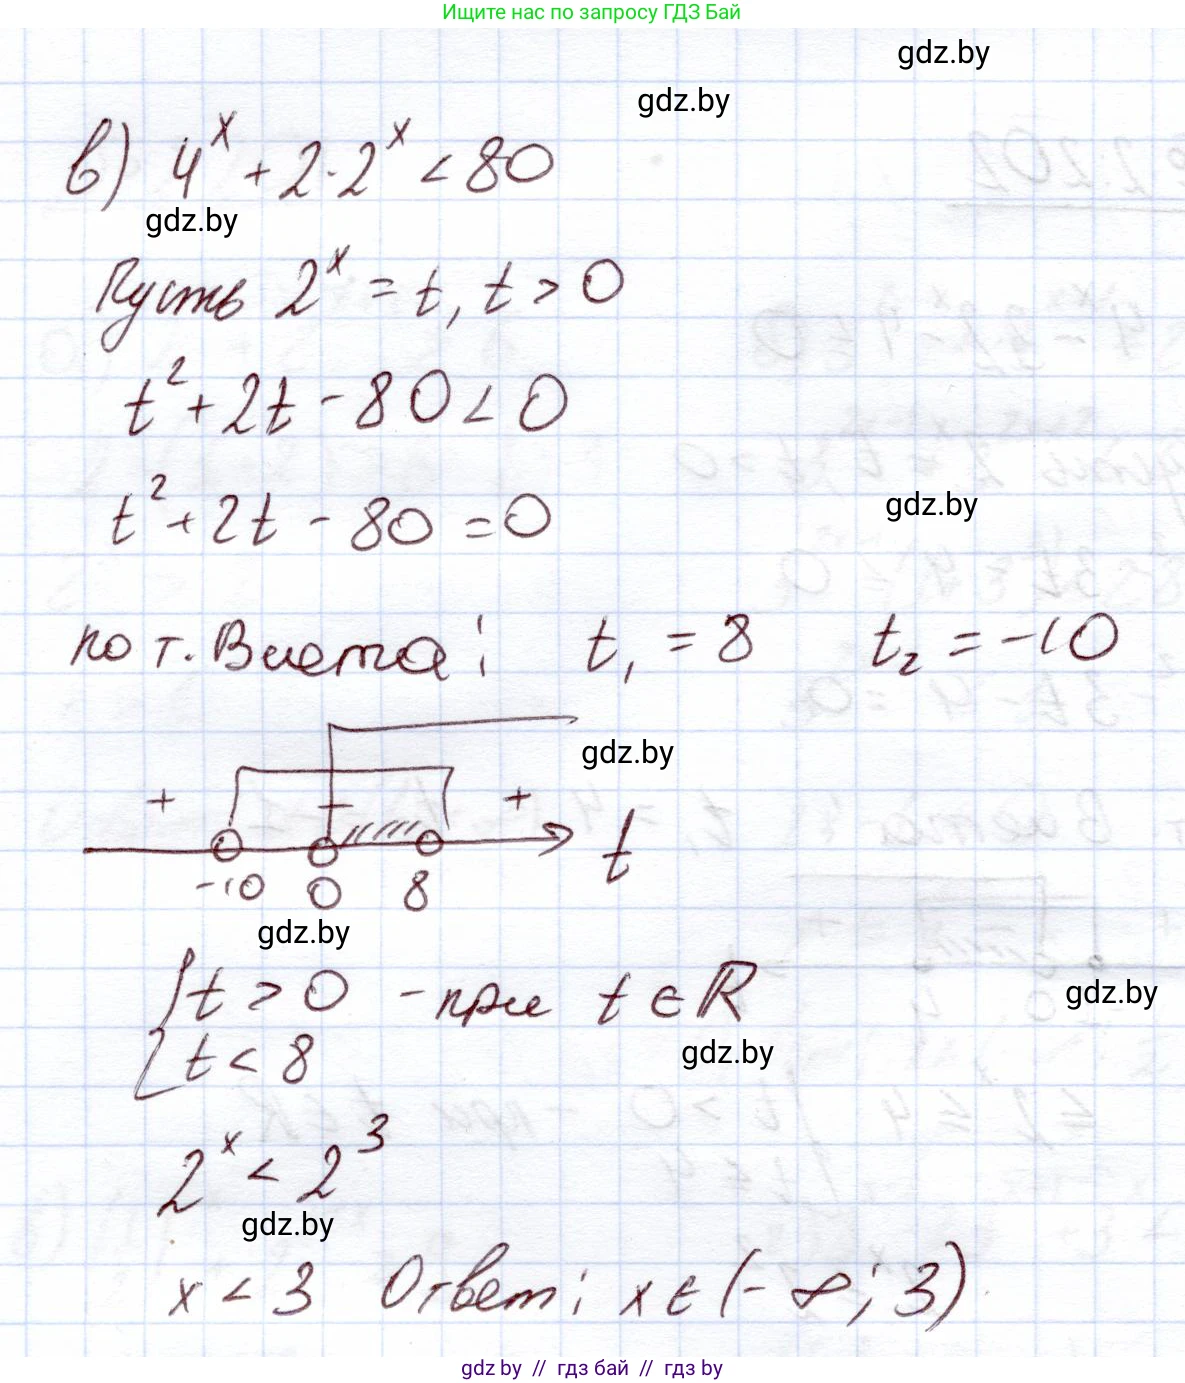 Ищите нас по запросу ГДЗ Бай
gdz.by
gdz.by
в) 4^x + 2·2^x < 80
gdz.by
Пусть 2^x = t, t > 0
t² + 2t - 80 < 0
t² + 2t - 80 = 0
gdz.by
по т. Виета: t₁ = 8 t₂ = -10
gdz.by
+ - + t
-10 0 8
gdz.by
{ t > 0 - при t ∈ R
gdz.by
{ t < 8
gdz.by
2^x < 2^3
gdz.by
x < 3 Ответ: x ∈ (-∞; 3).
gdz.by // гдз бай // гдз by